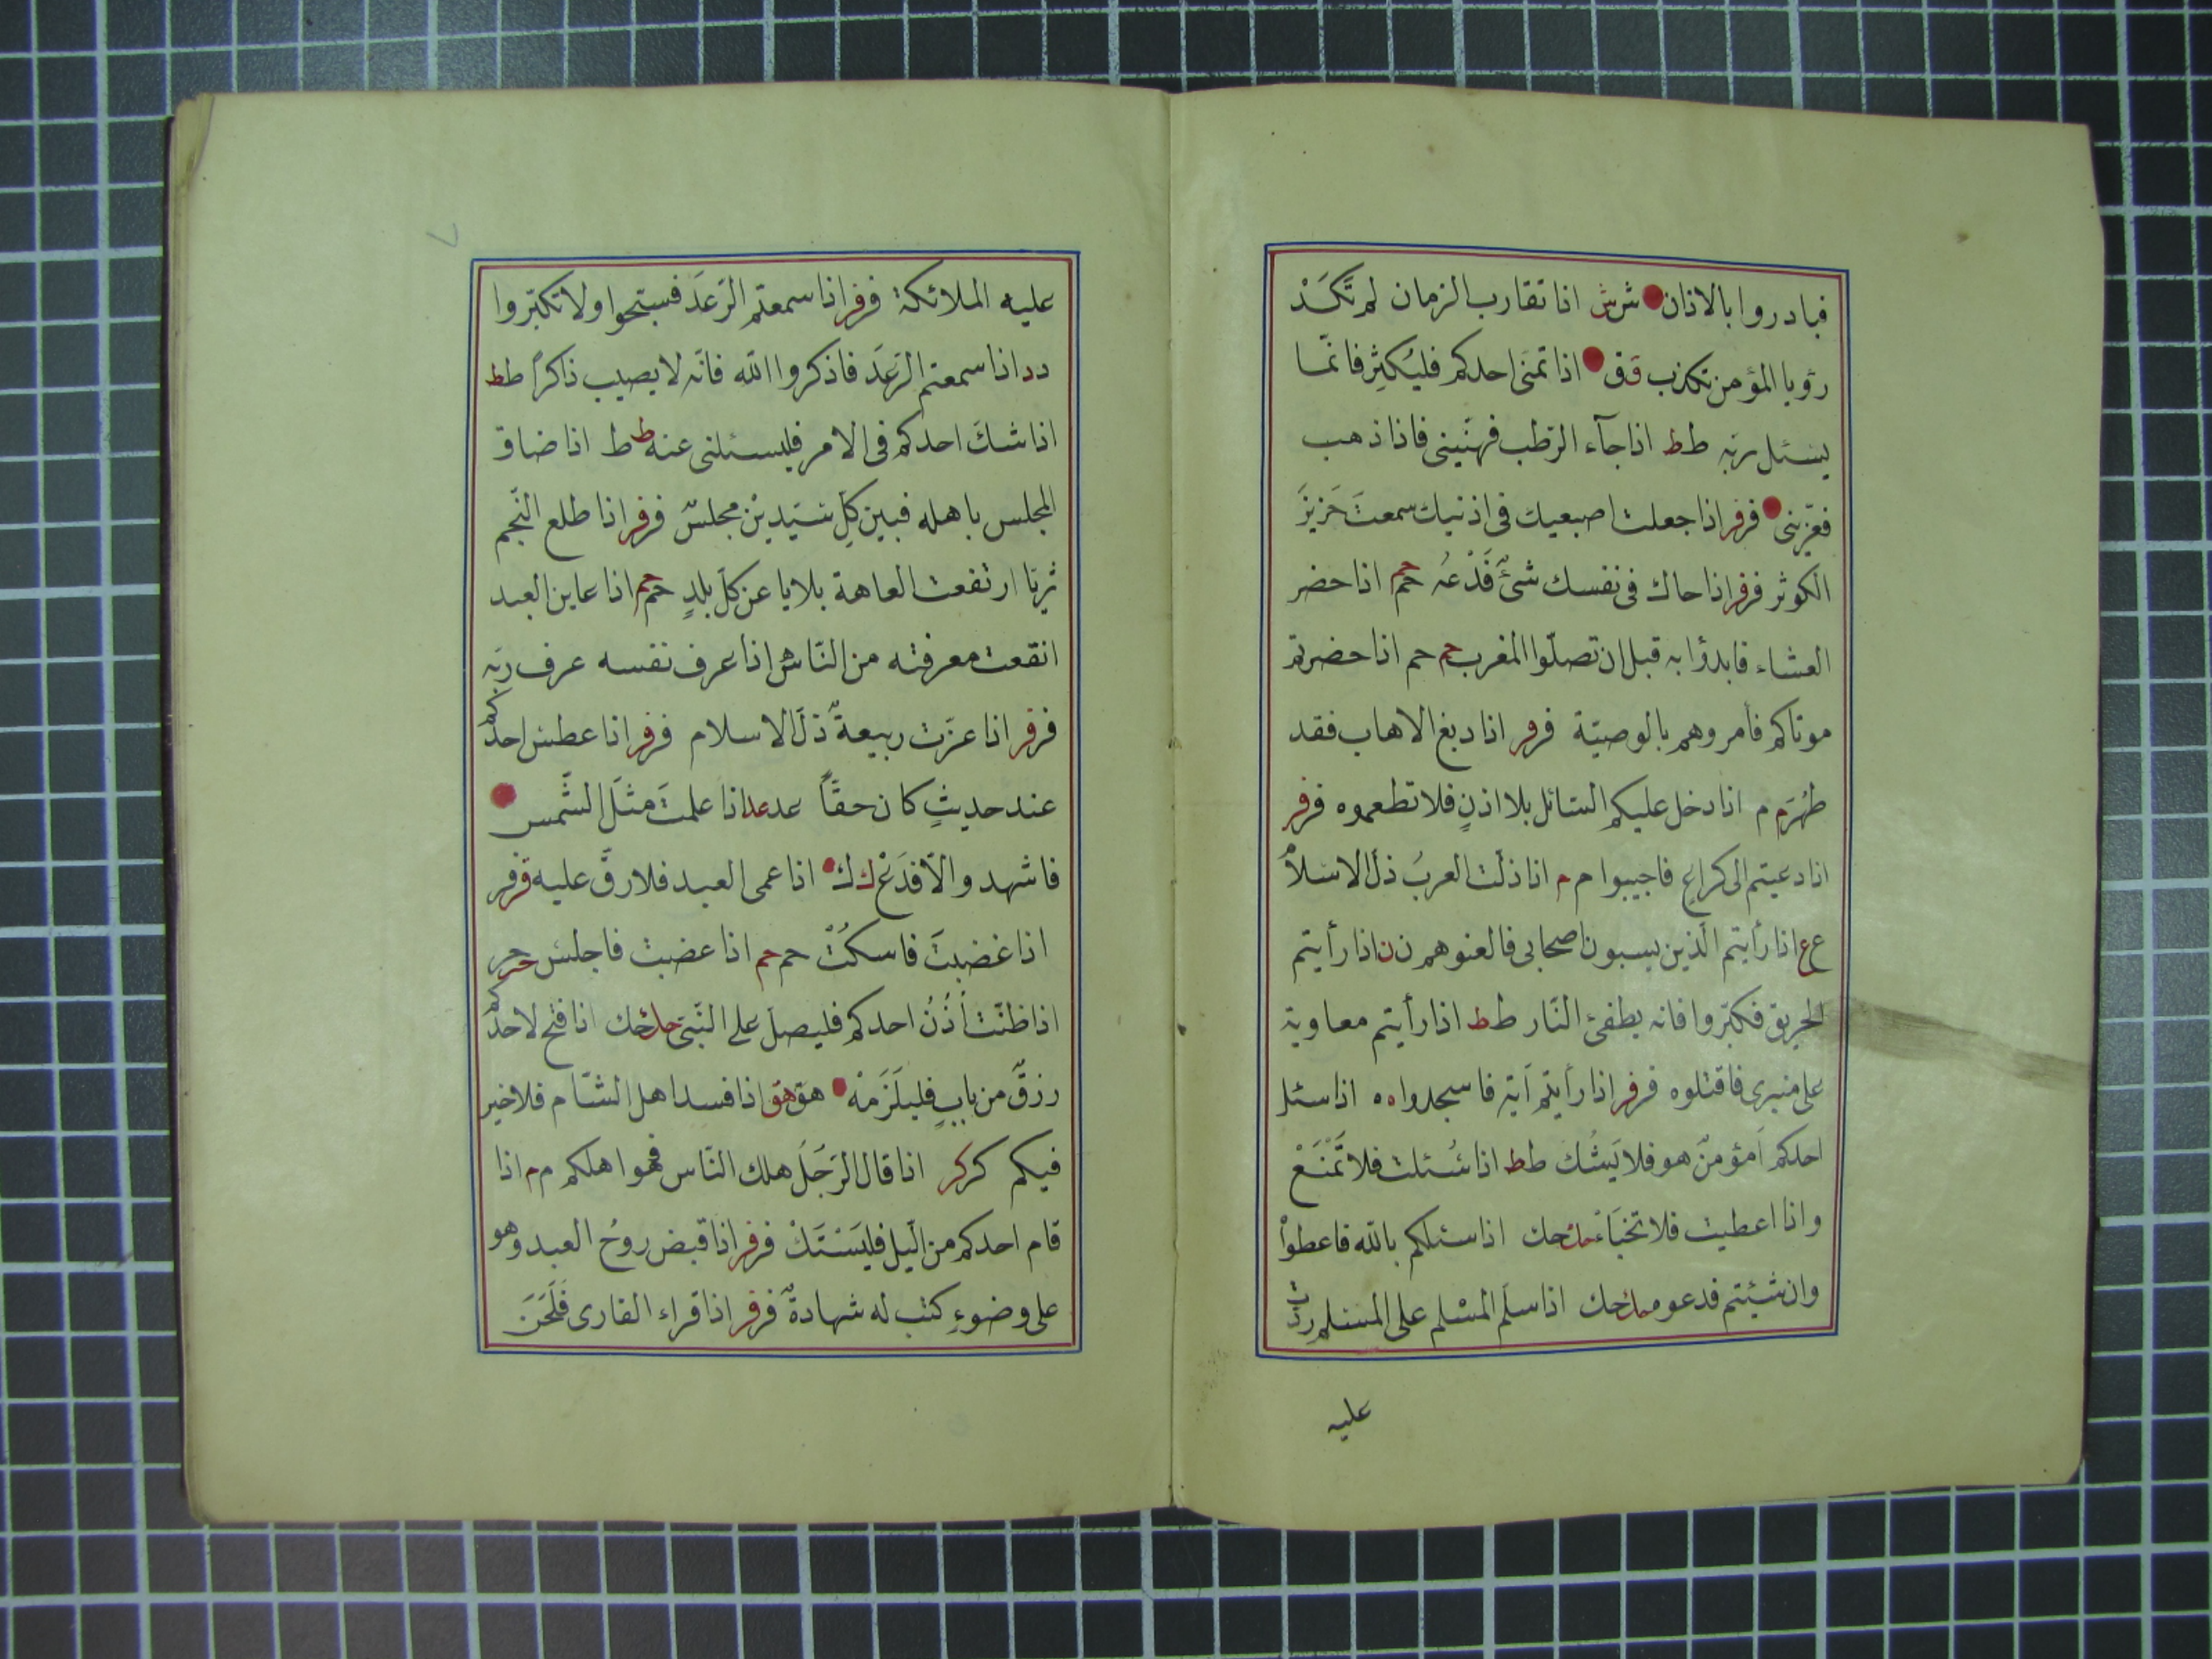 فبادروا بالاذان شش اذا تقارب الزمان لم تَكَدْ
رؤيا المؤمن تكذب قق اذا تمنى احدكم فليُكثِر فانّما
يسئل ربّه طط اذا جآء الرّطب فهنّينى فاذا ذهب
فعزّينى فرفر اذا جعلت اصبعيك فى اذنيك سمعتَ خَرِيرَ
الكوثر فرفر اذا حاك فى نفسك شئٌ فَدَعْهُ حمحم اذا حضر
العشاء فابدؤا به قبل ان تصلّوا المغرب حم حم اذا حضرتم
موتاكم فأمروهم بالوصيّة فرفر اذا دبغ الاهاب فقد
طهُرَ م م اذا دخل عليكم السّائل بلا اذنٍ فلا تطعموه فرفر
اذا دعيتم الى كراع فاجيبوا م م اذا ذلّت العربُ ذلّ الاسلامُ
عع اذا رأيتم الّذين يسبون اصحابى فالعنوهم ن ن اذا رأيتم
الحريق فكبّروا فانه يطفئ النّار طط اذا رأيتم معاوية
على منبرى فاقتلوه فرفر اذا رأيتم آية فاسجدوا ه ه اذا سئل
احدكم أمؤمنٌ هو فلا يَشُكَّ طط اذا سُئلت فلا تَمْنَعْ
واذا اعطيت فلا تخبَاءْ حك حك اذا سئلكم بالله فاعطوْا
وان شئيتم فدعوه حك حك اذا سلّم المسْلم على المسلم ردّت
عليه
٧
عليه الملائكة فرفر اذا سمعتم الرّعدَ فسبّحوا ولا تكبّروا
دد اذا سمعتم الرّعدَ فاذكروا الله فانّه لا يصيب ذاكرًا طط
اذا شكّ احدكم فى الامر فليسئلنى عنه طط اذا ضاق
المجلس باهله فبين كلّ سيّدين مجلسٌ فرفر اذا طلع النّجم
ثريّا ارتفعت العاهة بلايا عن كلّ بلدٍ حمحم اذا عاين العبد
انقعت معرفته من النّاس هـ اذا عرف نفسه عرف ربّه
فرفر اذا عزّت ربيعةٌ ذلّ الاسلام فرفر اذا عطس احدكم
عند حديثٍ كان حقًّا عدعد اذا علمتَ مثلَ الشّمس
فاشهد والّا فدَعْ ك ك اذا عمى العبد فلا رقّ عليه فرفر
اذا غضبتَ فاسكُتْ حم حم اذا غضبت فاجلس حرحر
اذا ظنّت أُذُنُ احدكم فليصلّ على النّبىّ حك حك اذا فتح لاحدكم
رزقٌ من بابٍ فليلَزَمْهُ هق هق اذا فسد اهل الشّام فلا خير
فيكم كركر اذا قال الرّجُلُ هلك النّاس فهوا هلكهم م م اذا
قام احدكم من الّيل فليَسْتَكْ فرفر اذا قبض روحُ العبد وهو
على وضوءٍ كتب له شهادةٌ فرفر اذا قراء القارى فَلَحَنَ